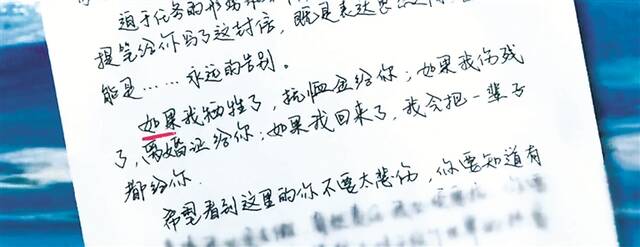 迫于任务的形
提笔给你写了这封信，既是表达
能是……永远的告别。
如果我牺牲了，抚恤金给你；如果我伤残
了，离婚证给你；如果我回来了，我会把一辈子
都给你.
希望看到这里的你不要太悲伤，你要知道有